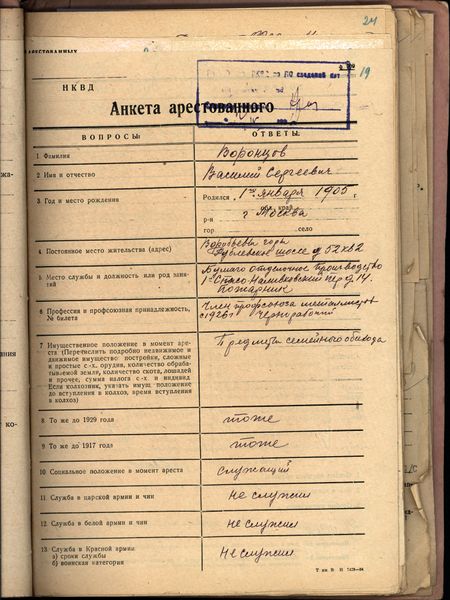 24
АРЕСТОВАННЫХ
19
НКВД
Анкета арестованного
ВОПРОСЫ: ОТВЕТЫ.
1 Фамилия Воронцов
2. Имя и отчество Василий Сергеевич
3. Год и место рождения Родился 1го января 1905 г.
обл. край
р-н г Москва
гор село
4. Постоянное место жительства (адрес) Воробьевы горы
Рублевское шоссе д 52 кв 2
5 Место службы и должность или род заня- Бумаго отделочное производство
тий 1й Спасо Наливковский пер д 14.
Пожарник
6 Профессия и профсоюзная принадлежность, Член профсоюза
№ билета с 1926 г Чернорабочий
7 Имущественное положение в момент аре- Предметы семейного обихода
ста (Перечислить подробно недвижимое и
движимое имущество: постройки, сложные
и простые с-х. орудия, количество обрабаты-
ваемой земли, количество скота, лошадей
и прочее, сумма налога с-х. и индивид.
Если колхозник, указать имущ. положение
до вступления в колхоз, время вступления
в колхоз)
8 То же до 1929 года тоже
9 То же до 1917 года тоже
10 Социальное положение в момент ареста служащий
11 Служба в царской армии и чин не служил
12 Служба в белой армии и чин не служил
13 Служба в Красной армии не служил
а) сроки службы
б) воинская категория